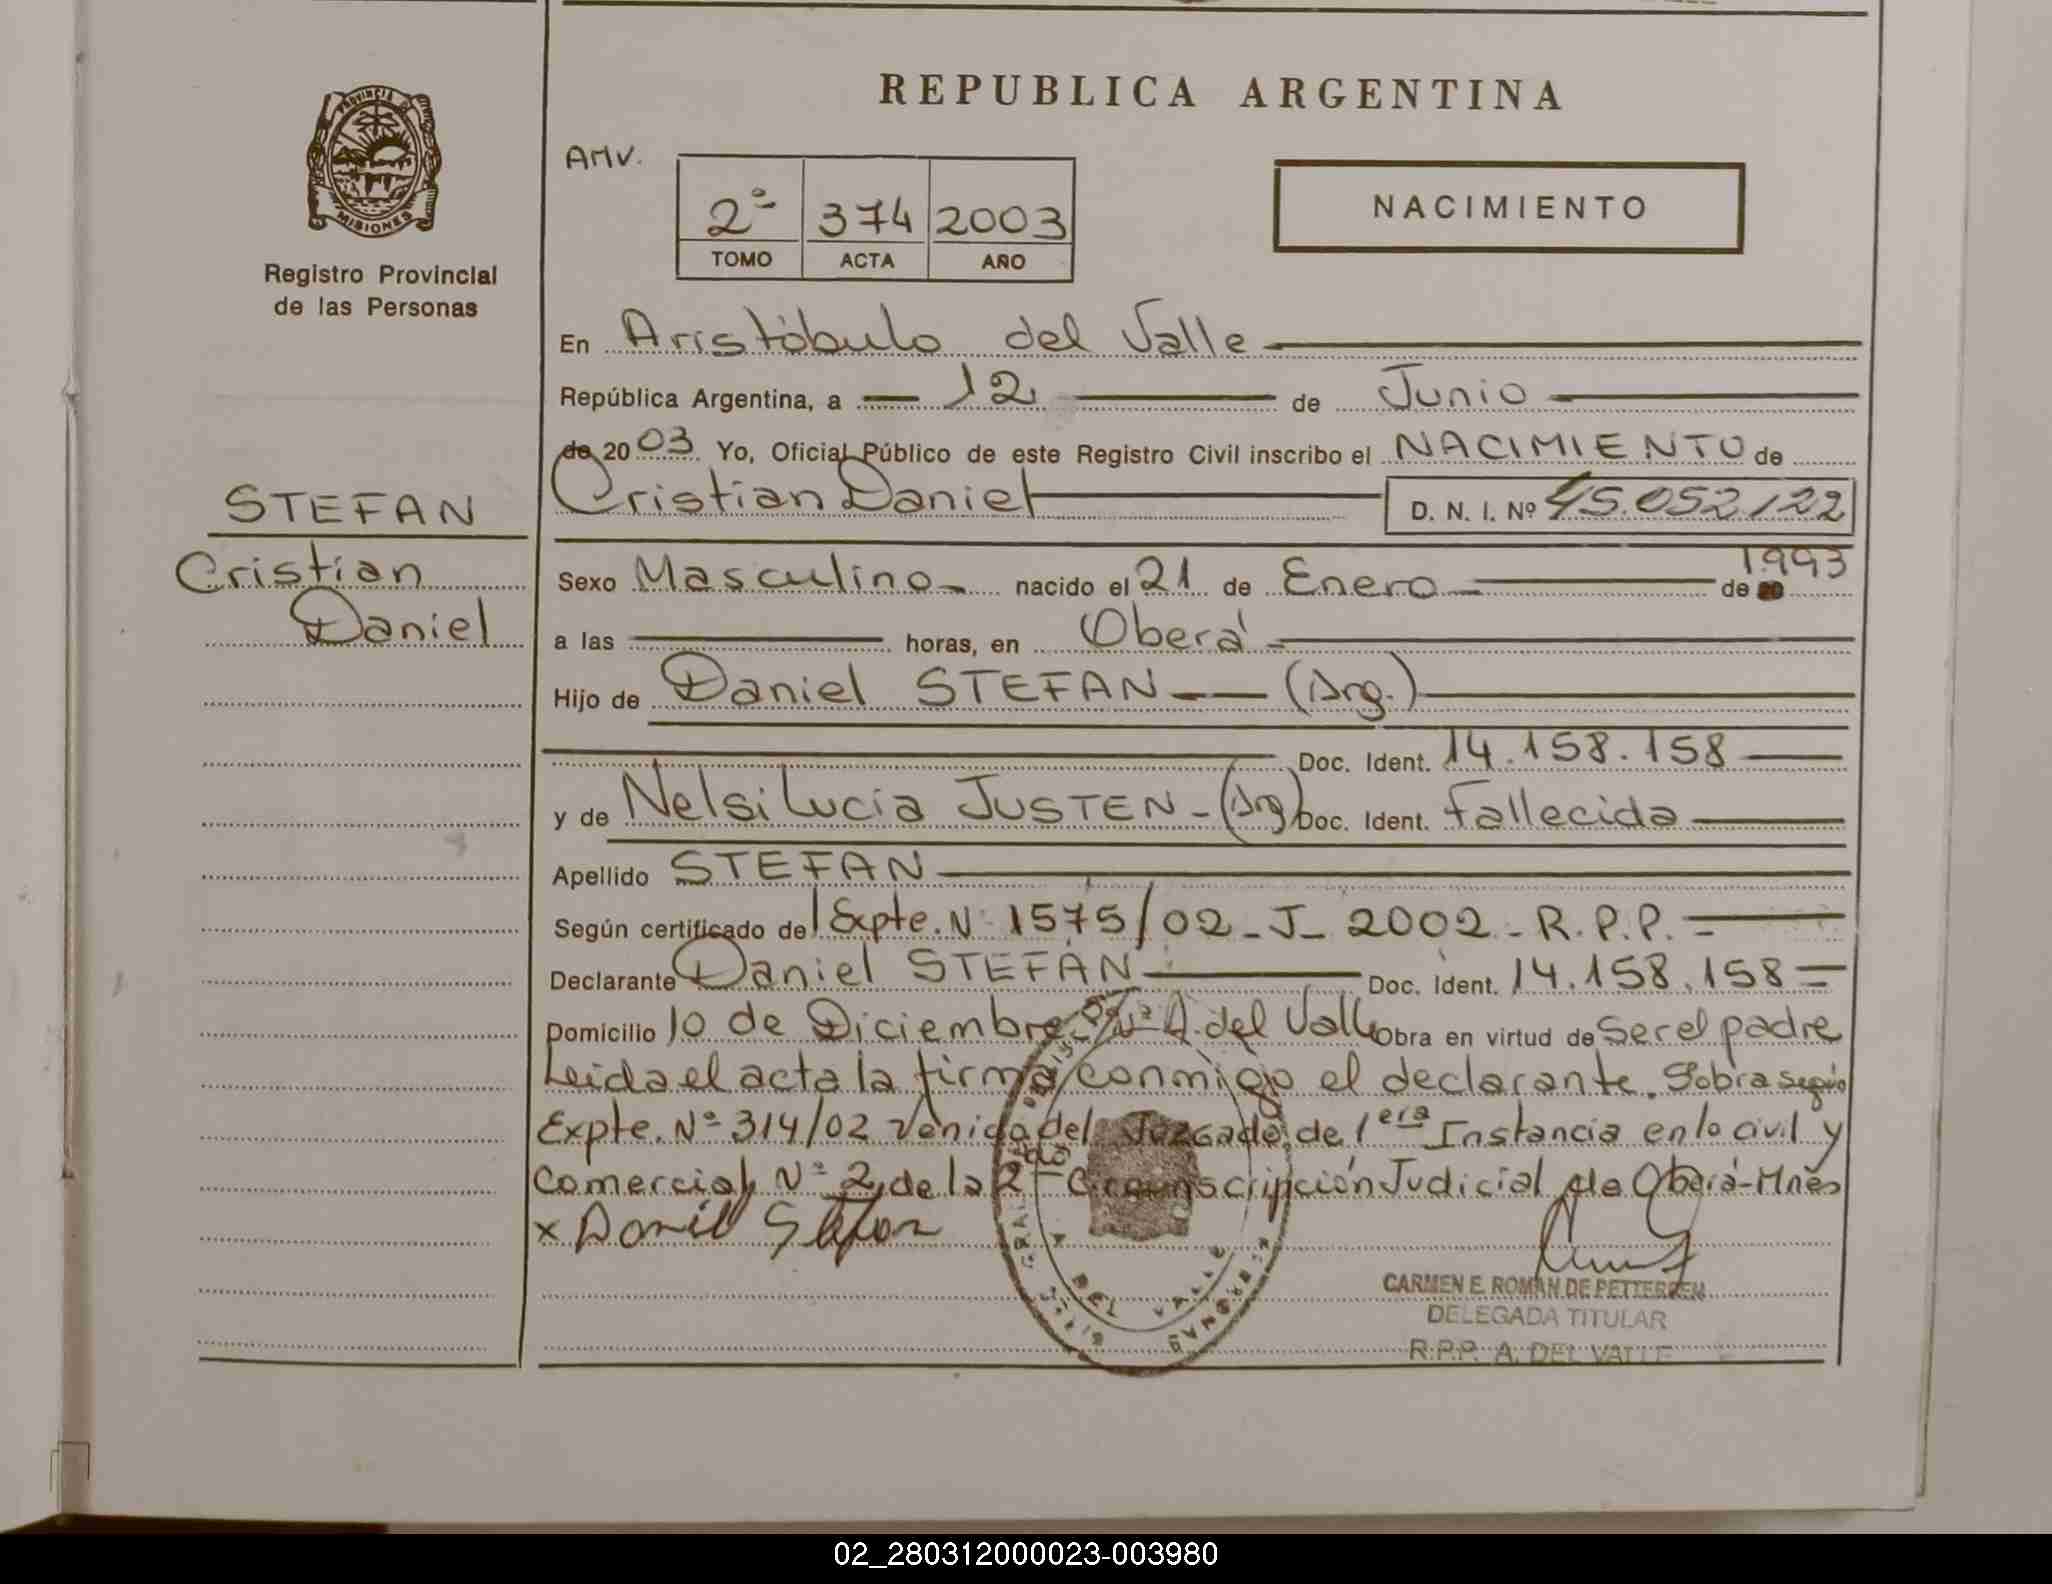 REPUBLICA ARGENTINA
PROVINCIA DE
MISIONES
Registro Provincial
de las Personas
AMV.
2º 374 2003
TOMO ACTA AÑO
NACIMIENTO
En Aristóbulo del Valle
República Argentina, a 12 de Junio
de 2003 Yo, Oficial Público de este Registro Civil inscribo el NACIMIENTO de
Cristian Daniel D. N. I. Nº 45.052.122
STEFAN
Cristian
Daniel
Sexo Masculino nacido el 21 de Enero de 1993
a las horas, en Oberá
Hijo de Daniel STEFAN (Arg.)
Doc. Ident. 14.158.158
y de Nelsi Lucia JUSTEN - (Arg) Doc. Ident. Fallecida
Apellido STEFAN
Según certificado de Expte. Nº 1575/02 - J - 2002 - R.P.P.
Declarante Daniel STEFAN Doc. Ident. 14.158.158
Domicilio 10 de Diciembre A. del Valle Obra en virtud de ser el padre
Leida el acta la firma conmigo el declarante. Sobra según
Expte. Nº 314/02 Venida del Juzgado de 1era Instancia en lo civil y
Comercial Nº 2 de la 2da Circunscripción Judicial de Oberá - Mnes
x Daniel Stefan
DEL VALLE
CARMEN E. ROMAN DE PETTERSEN
DELEGADA TITULAR
R.P.P. A. DEL VALLE
02_280312000023-003980